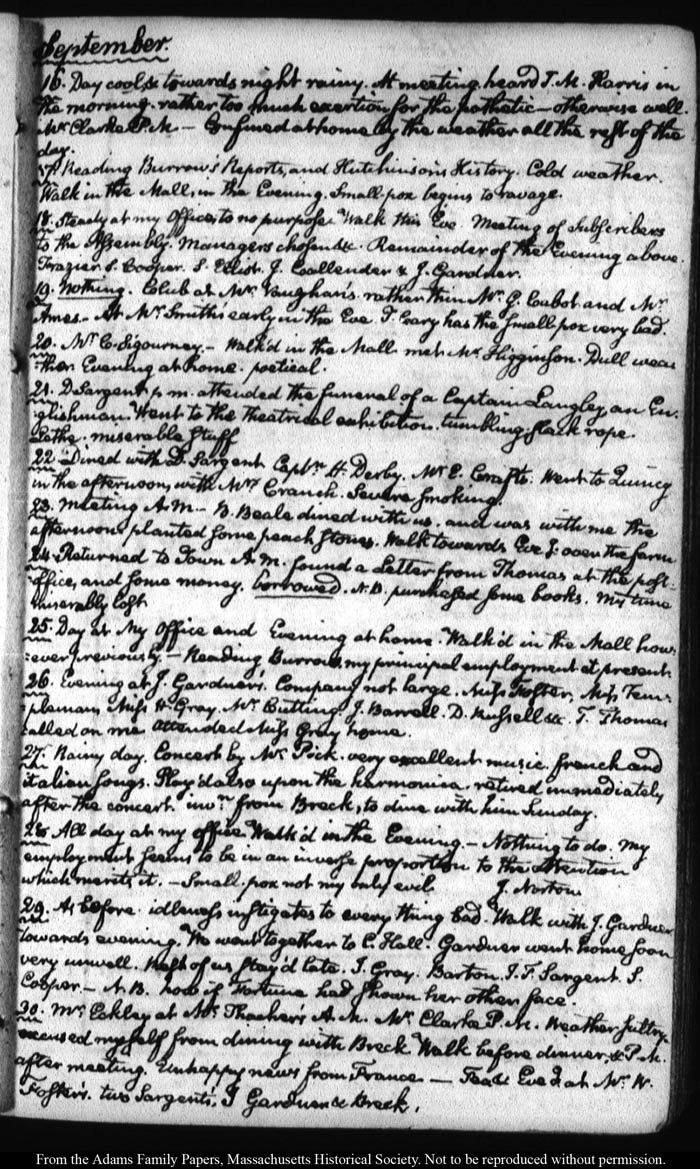 September.
16. Day cool, & towards night rainy. At meeting heard T. M. Harris in
the morning. rather too much exertion for the pathetic — otherwise well.
Mr. Clarke P.M. — Confined at home by the weather all the rest of the
day.
17. Reading Burrow's Reports, and Hutchinson's History. Cold weather.
Walk in the Mall, in the Evening. Small-pox begins to ravage.
18. Steady at my Office, to no purpose. Walk this Eve. Meeting of Subscribers
to the Assembly. Managers chosen &c. Remainder of the Evening above.
Frazier S. Cooper. S. Elliot. J. Callender & J. Gardner.
19. Nothing. Club at Mr. Vaughan's. rather thin Mr. G. Cabot and Mr.
Ames. — At Mr. Smith's early in the Eve. T. Cary has the small pox very bad.
20. Mr. C. Sigourney. — Walk'd in the Mall met Mr. Higginson. Dull wea-
ther Evening at home. poetical.
21. D. Sargent p.m. attended the funeral of a Captain Langley, an En-
glishman. Went to the theatrical exhibition. tumbling, slack rope.
miserable stuff
22. Dined with D. Sargent. Captn. H. Derby. Mr. E. Crafts. Went to Quincy
in the afternoon, with Mr. Cranch. Severe smoking.
23. Meeting A.M. — B. Beale dined with us. and was with me the
afternoon planted some peach stones. Walk towards Eveg. over the farm
24. Returned to Town A.M. found a Letter from Thomas at the post-
office, and some money. borrowed. N.B. purchased some books. My time
miserably lost
25. Day at My Office and Evening at home. Walk'd in the Mall how-
ever previously. — Reading Burrow, my principal employment at present.
26. Evening at J. Gardner's. Company not large. Miss Foster, Miss Tem-
pleman, Miss H. Gray. Mr. Cutting. J. Barrell. D. Russell &c. T. Thomas
called on me attended Miss Gray home.
27. Rainy day. Concert by Mr. Pick. very excellent music. french and
italian songs. Play'd also upon the harmonica. retired immediately
after the concert. invn. from Breck, to dine with him Sunday.
28. All day at my office. Walk'd in the Evening. — Nothing to do. My
employment seems to be in an inverse proportion to the attention
which merits it. — Small pox not my only evil. J. Norton
29. As before. idleness instigates to every thing bad. Walk with J. Gardner
towards evening. We went together to C. Hall. Gardner went home soon
very unwell. Rest of us stay'd late. T. Gray. Barton. J. F. Sargent. S.
Cooper. — N.B. now if Fortune had shown her other face.
30. Mr. Eckley at Mr. Thacher's A.M. Mr. Clarke P.M. Weather sultry.
excused myself from dining with Breck. Walk before dinner, & P.M.
after meeting. Unhappy news from France — Tea & Eveg. at Mr. W.
Foster's. two Sargents, J Gardner & Breck.
From the Adams Family Papers, Massachusetts Historical Society. Not to be reproduced without permission.